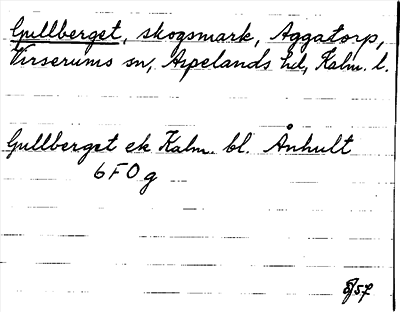 Gullberget, skogsmark, Aggatorp,
Virserums sn, Aspelands hd, Kalm. l.
Gullberget ek Kalm. bl. Ånhult
6F0g
8/57